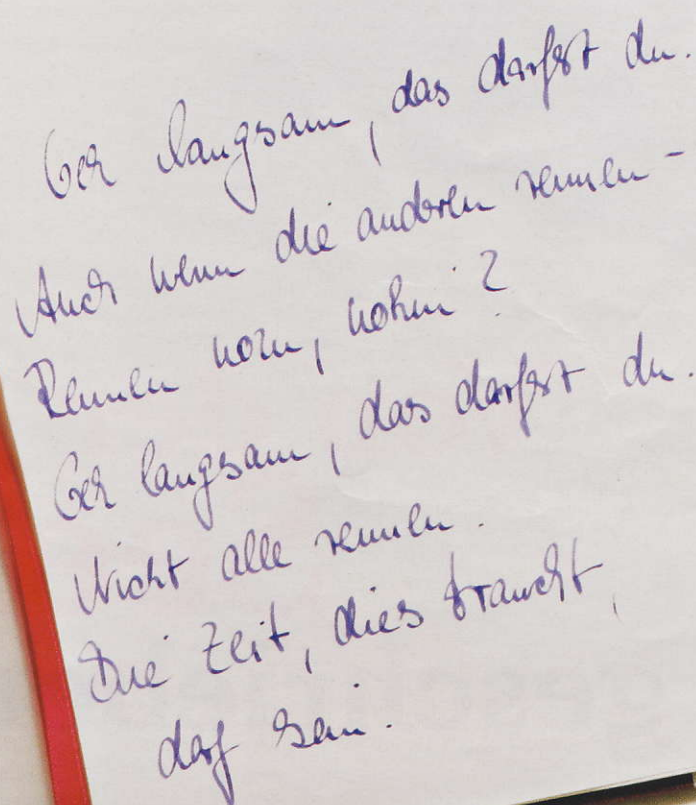 Geh langsam, das darfst du.
Auch wenn die anderen rennen -
Rennen wozu, wohin?
Geh langsam, das darfst du.
Nicht alle rennen.
Die Zeit, dies braucht,
darf sein.